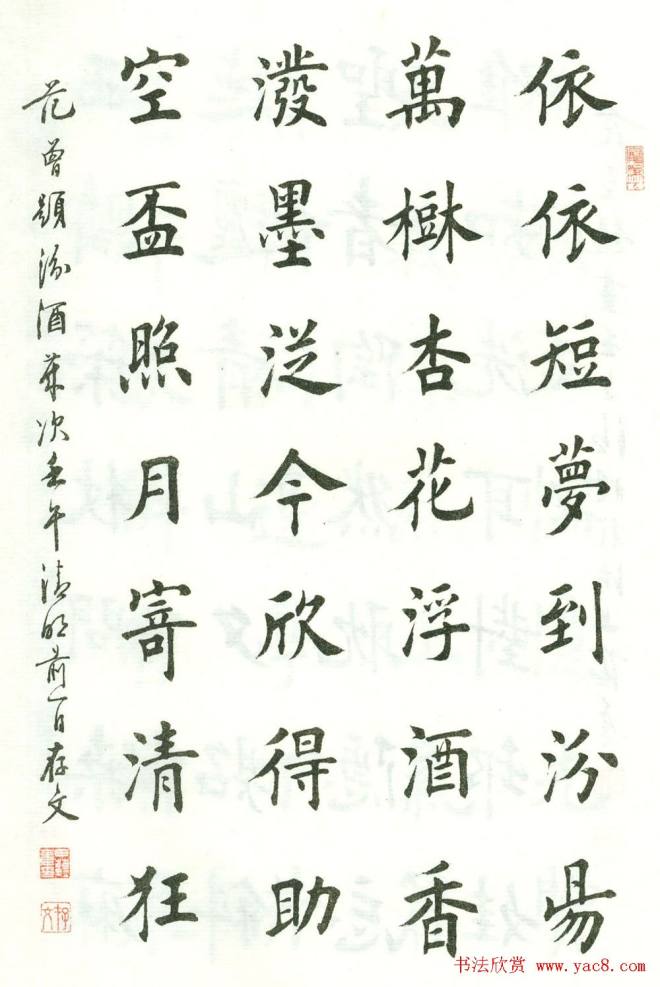 依依短夢到汾昜
萬樹杏花浮酒香
潑墨從今欣得助
空盃照月寄清狂
范曾題汾酒 次壬午清明前一日存文
书法欣赏 www.yac8.com